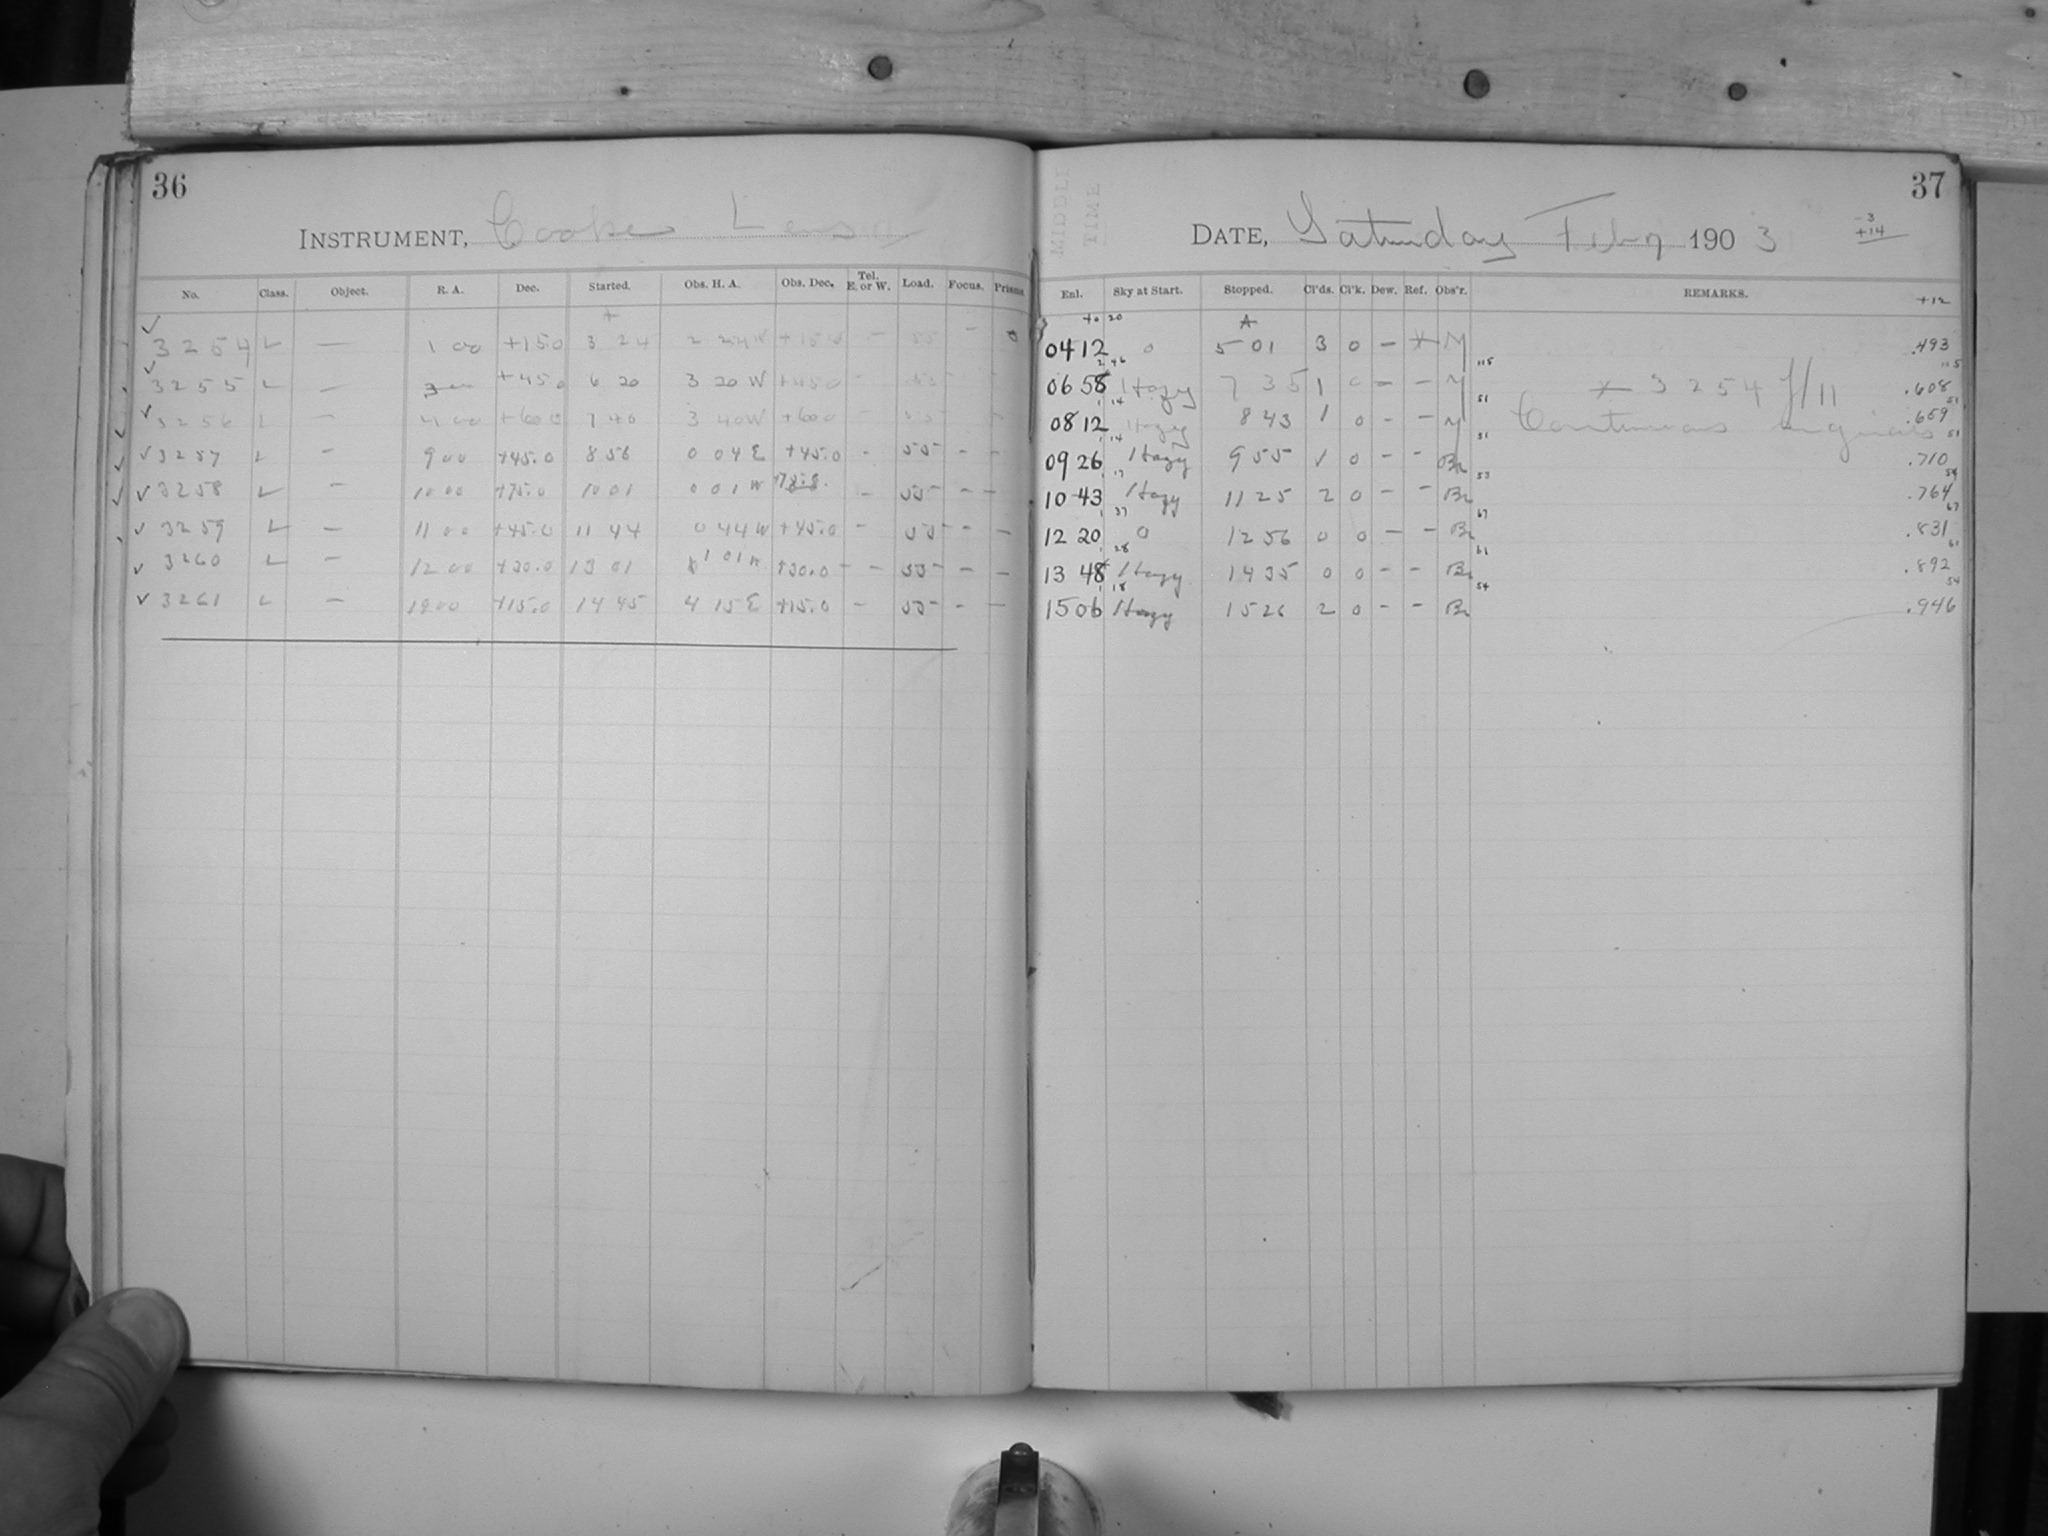 36
INSTRUMENT, Cooke Lens
No. Class. Object. R. A. Dec. Started. Obs. H. A. Obs. Dec. Tel. E. or W. Load. Focus. Prisms
✓ 3254 L — 1 00 +15.0 3 24 2 24 W +15.0 — 55 —
✓ 3255 L — 3 00 +45.0 6 20 3 20 W +45.0 — 55 — —
✓ 3256 L — 4 00 +60.0 7 40 3 40 W +60.0 — 55 — —
✓ 3257 L — 9 00 +45.0 8 56 0 04 E +45.0 — 55 — —
✓ 3258 L — 10 00 +75.0 10 01 0 01 W — 55 — —
✓ 3259 L — 11 00 +45.0 11 44 0 44 W +45.0 — 55 — —
✓ 3260 L — 12 00 +30.0 13 01 1 01 W +30.0 — — 55 — —
✓ 3261 L — 19 00 +15.0 14 45 4 15 E +15.0 — 55 — —
37
MIDDLE TIME
DATE, Saturday Feb 7 1903
-3
+14
Enl. Sky at Start. Stopped. Cl'ds. Cl'k. Dew. Ref. Obs'r. REMARKS.
+12
+0 20
04 12 0 5 01 3 0 — M .493
2 46 115 115
06 58 Hazy 7 35 1 0 — — M × 3254 f/11 .608
1 14 51 51
08 12 Hazy 8 43 1 0 — — M Continuous .659
1 14 51 51
09 26 Hazy 9 55 1 0 — — Br .710
1 17 53 54
10 43 Hazy 11 25 2 0 — — Br .764
1 37 67 67
12 20 0 12 56 0 0 — — Br .831
1 28 61 61
13 48 Hazy 14 35 0 0 — — Br .892
1 18 54 54
15 06 Hazy 15 26 2 0 — — Br .946